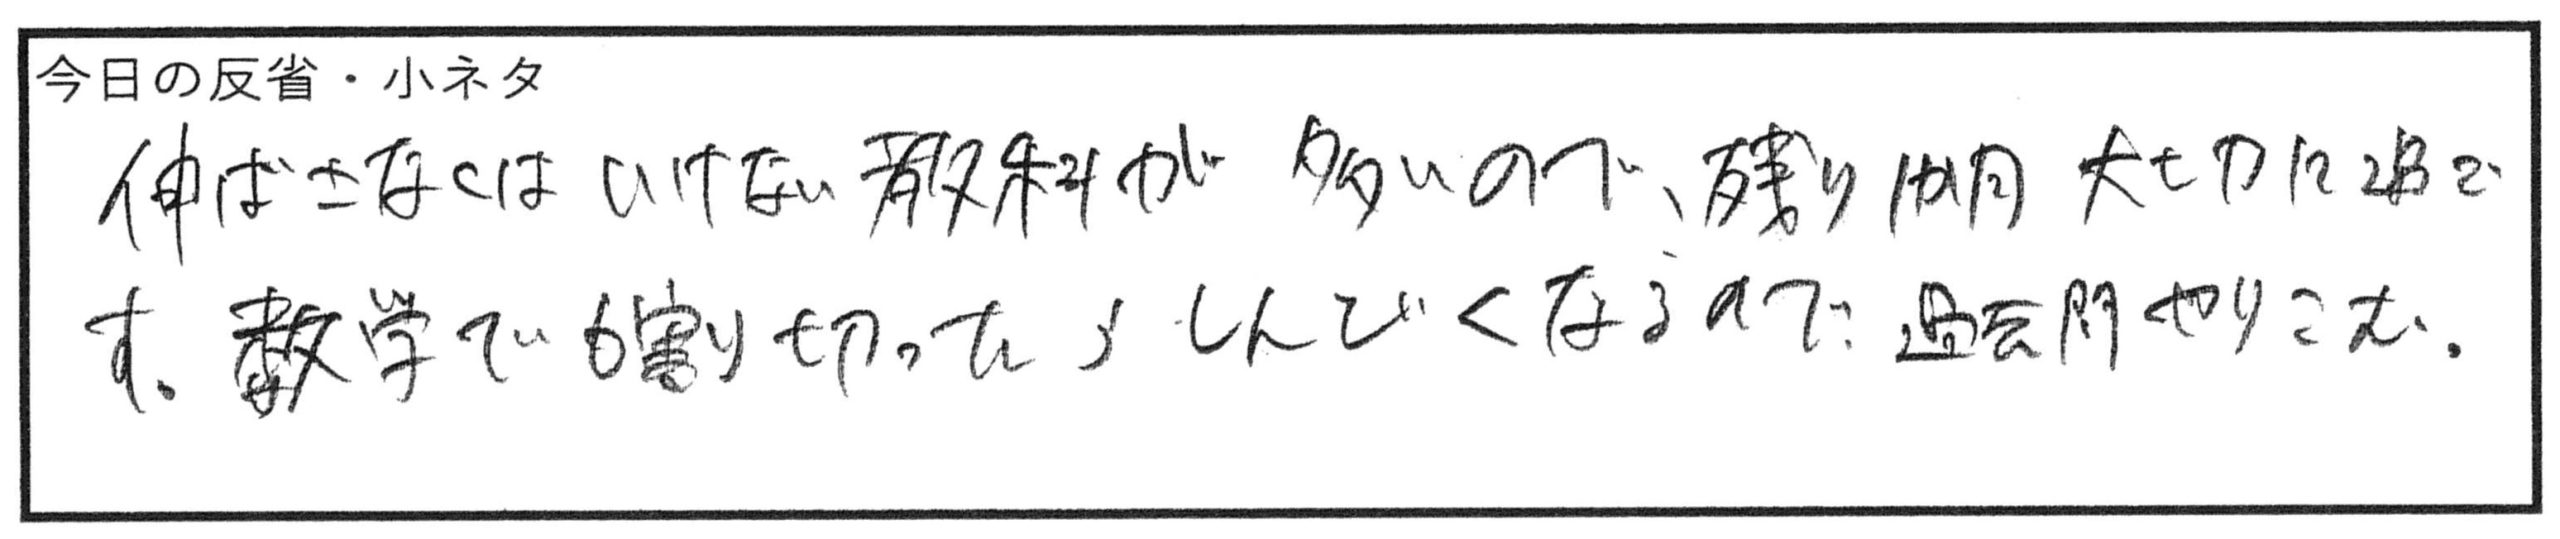 今日の反省・小ネタ
伸ばさなくはいけない教科が多いので、残り1か月大切に過ご
す。数学でも割り切ったらしんどくなるので過去問やりこむ。